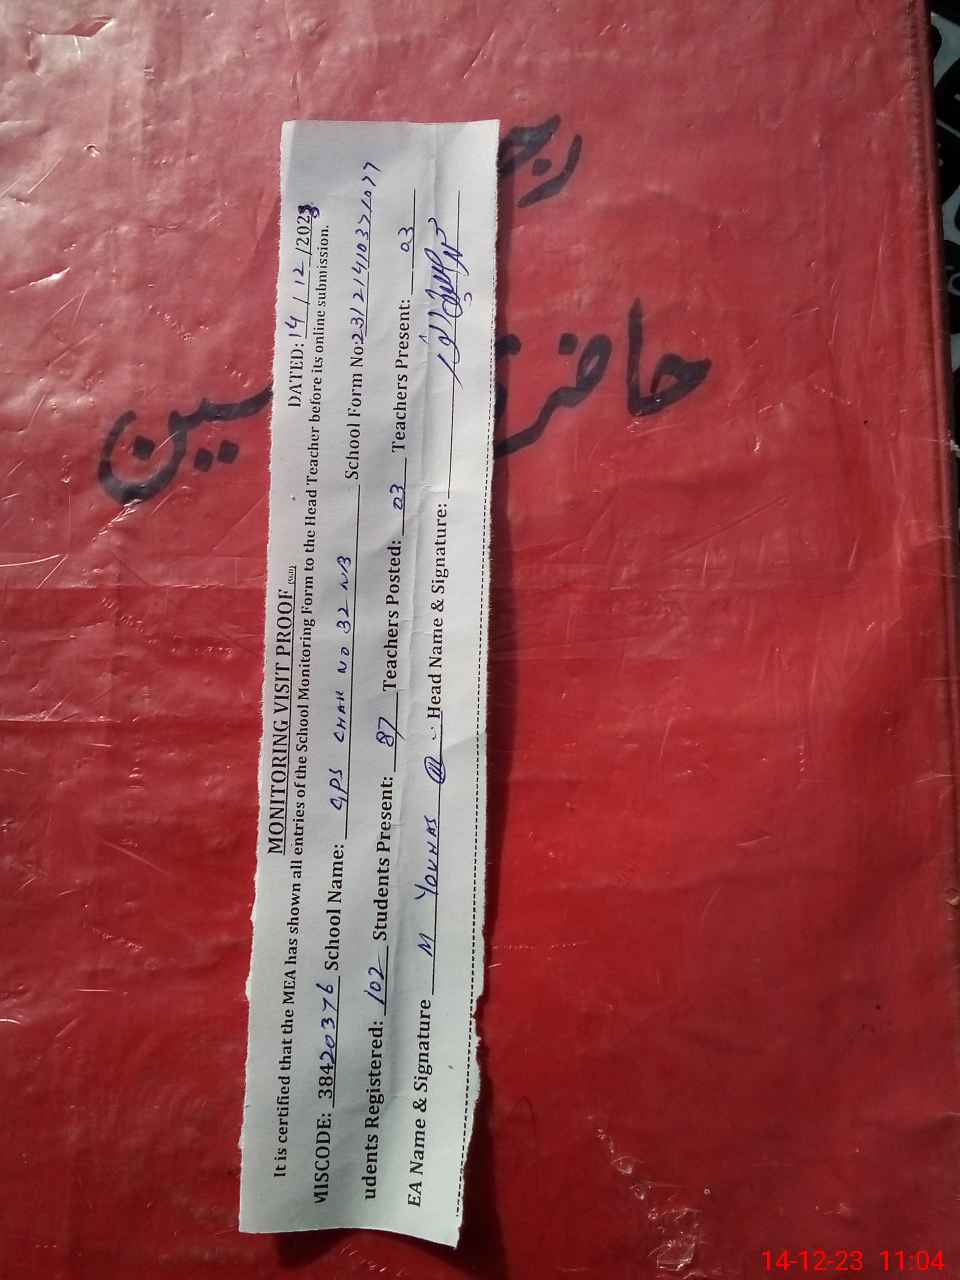 MONITORING VISIT PROOF
DATED: 14 / 12 /2023
It is certified that the MEA has shown all entries of the School Monitoring Form to the Head Teacher before its online submission.
MISCODE: 38420376 School Name: GPS CHAK NO 32 NB School Form No:
udents Registered: 102 Students Present: 87 Teachers Posted: 03 Teachers Present: 03
EA Name & Signature M YOUNAS Head Name & Signature:
حاضری
14-12-23 11:04